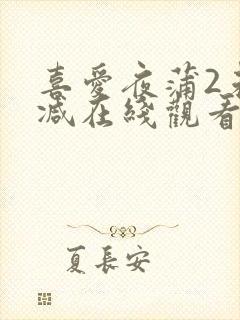 喜愛夜蒲2
減在綫觀看
夏長安